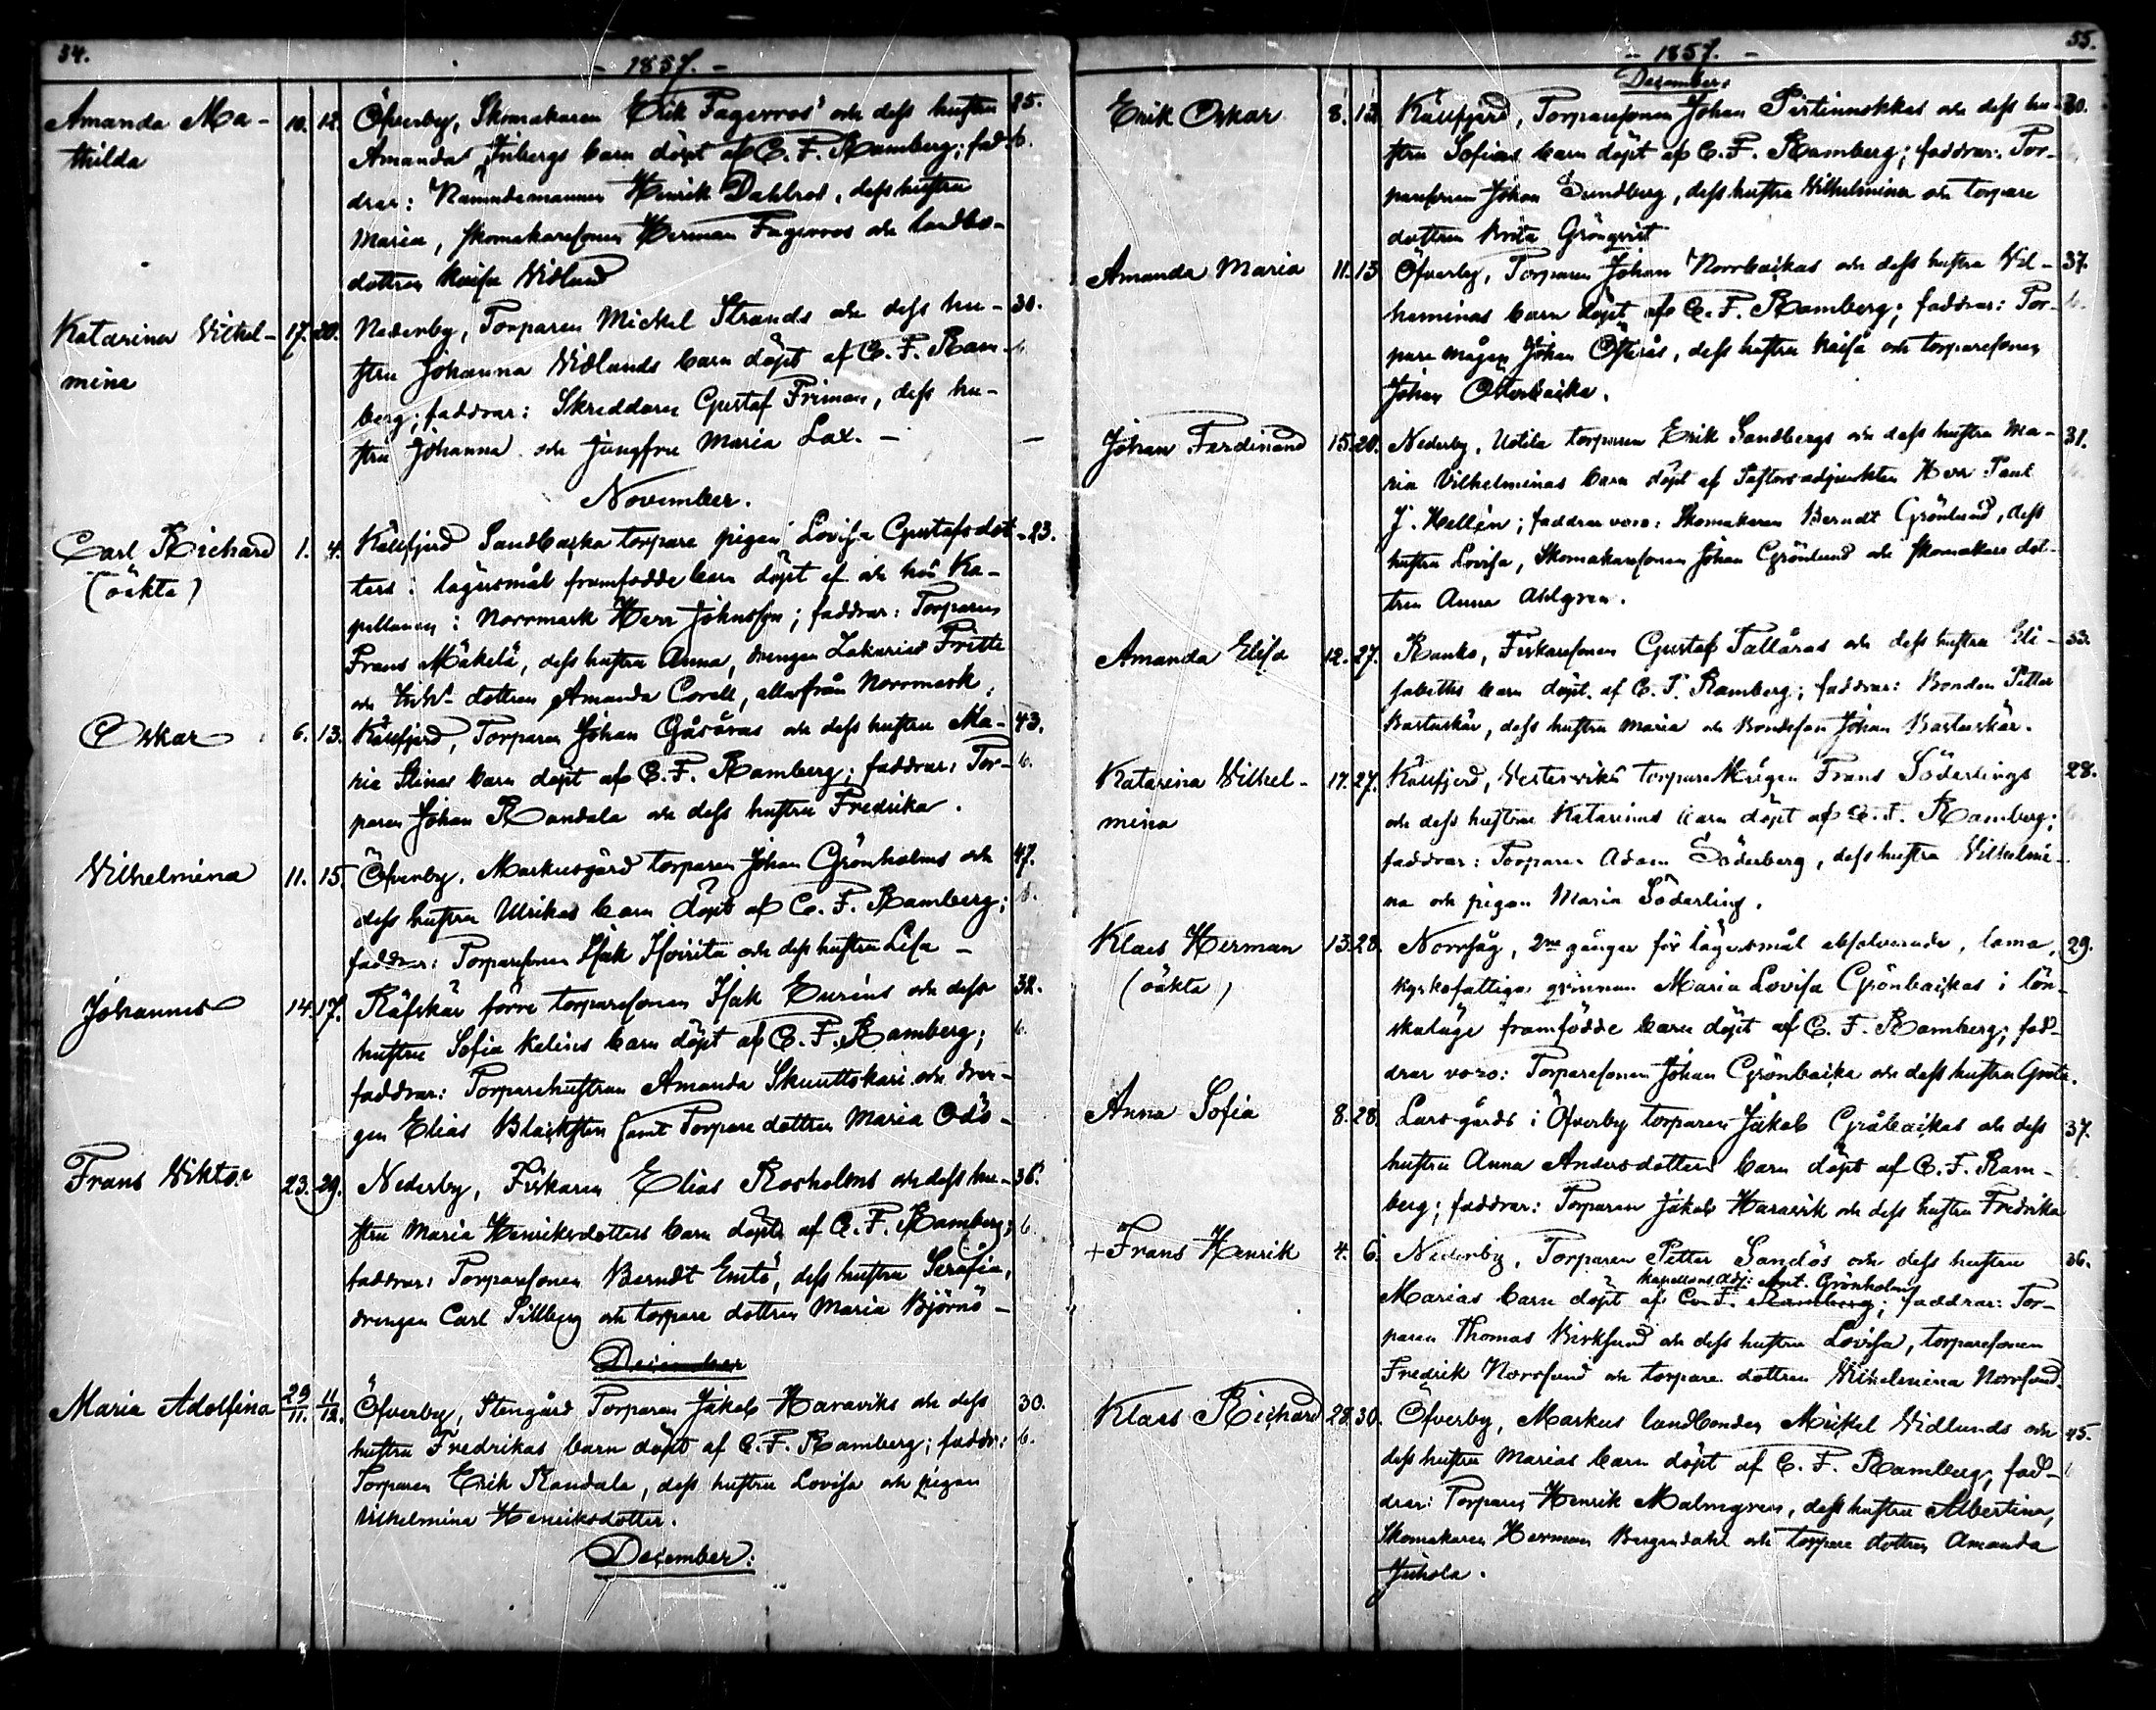 54.
- 1857. -
Amanda Ma- 10. 12. Öfverby, Skomakaren Erik Fagerroos' och dess hustru 25.
thilda Amanda Inbergs barn döpt af C. F. Ramberg; fad- b.
drar: Nämndemannen Henrik Dahlros, dess hustru
Maria, skomakaresonen Herman Fagerroos och landbo-
dottren Kaisa Vidlund
Katarina Vilhel- 17. 20. Nederby, Torparen Mickel Strands och dess hu- 30.
mina stru Johanna Vidlunds barn döpt af C. F. Ram- b.
berg; faddrar: Skreddaren Gustaf Friman, dess hu-
stru Johanna och Jungfru Maria Lax. - -
November.
Carl Richard 1. 4. Kållfjerd Sandbacka torpare pigan Lovisa Gustafsdot- 23.
(oäkta) ters i lägersmål framfödde barn döpt af och hos Ka-
pellanen i Norrmark Herr Johnsson; faddrar: Torparen
Frans Mäkelä, dess hustru Anna, drengen Zakarias Fritte
och dottren Amanda Corell, alla från Norrmark.
Oskar 6. 13. Kållfjerd, Torparen Johan Gåsåras och dess hustru Ma- 43.
ria Stinas barn döpt af C. F. Ramberg; faddrar: Tor- b.
paren Johan Randala och dess hustru Fredrika.
Vilhelmina 11. 15. Öfverby, Markusgård torparen Johan Grönholms och 47.
dess hustru Ulrikas barn döpt af C. F. Ramberg; b.
faddrar: Torparesonen Isak och dess hustru Lisa -
Johannes 14. 17. Räfskär förre torparesonen Isak Eurens och dess 32.
hustru Sofia Kelins barn döpt af C. F. Ramberg; b.
faddrar: Torparehustrun Amanda Skuuttskari och dren-
gen Elias Blacksten samt Torpare dottren Maria Odö -
Frans Viktor 23. 29. Nederby, Fiskaren Elias Rosholms och dess hu- 36.
stru Maria Henriksdotters barn döpts af C. F. Ramberg; b.
faddrar: Torparesonen Berndt Enstö, dess hustru Serafia,
drengen Carl Sillberg och torpare dottren Maria Björnö -
December
Maria Adolfina 29/11. 11/12. Öfverby, Stengård Torparen Jakob Haraviks och dess 30.
hustru Fredrikas barn döpt af C. F. Ramberg; faddr: b.
Torparen Erik Randala, dess hustru Lovisa och pigan
Vilhelmina Henriksdotter.
December:
55.
- 1857. -
December.
Erik Oskar 8. 12. Kållfjerd, Torparesonen Johan Pirtinuskkas och dess hu- 30.
stru Sofias barn döpt af C. F. Ramberg; faddrar: Tor-
paresonen Johan Sundberg, dess hustru Vilhelmina och torpare
dottren Brita Grönqvist
Amanda Maria 11. 13 Öfverby, Torparen Johan Norrbackas och dess hustru Vil- 37.
helminas barn döpt af C. F. Ramberg; faddrar: Tor- b.
pare mågen Johan Österås, dess hustru Kaisa och torparesonen
Johan Österbacka.
Johan Ferdinand 15. 20. Nederby, Uotila torparen Erik Sandbergs och dess hustru Ma- 31.
ria Vilhelminas barn döpt af Pastorsadjunkten Herr Paul
J. Hellén; faddrar voro: Skomakaren Berndt Grönlund, dess
hustru Lovisa, Skomakaresonen Johan Grönlund och skomakare dot-
tren Anna Ahlgren.
Amanda Elisa 12. 27. Ranko, Fiskaresonen Gustaf Tallåras och dess hustru Eli- 33.
sabeths barn döpt af C. F. Ramberg; faddrar: Bonden Petter
Bastuskär, dess hustru Maria och Bondeson Johan Bastuskär.
Katarina Vilhel- 17. 27. Kållfjerd, Vesterviks torpare Mågen Frans Söderlings 28.
mina och dess hustru Katarinas barn döpt af C. F. Ramberg;
faddrar: Torparen Adam Söderberg, dess hustru Vilhelmi-
na och pigan Maria Söderling.
Klaes Herman 13. 28. Norrsåg, 2ne gånger för lägersmål absolverade, lama, 29.
(oäkta) kyrkofattiga qvinnan Maria Lovisa Grönbackas i lön-
skaläge framfödde barn döpt af C. F. Ramberg; fad-
drar voro: Torparesonen Johan Grönbacka och dess hustru Greta.
Anna Sofia 8. 28. Lars-gårds i Öfverby torparen Jakob Gråbackas och dess 37.
hustru Anna Andersdotters barn döpt af C. F. Ram-
berg; faddrar: Torparen Jakob Haravik och dess hustru Fredrika
+ Frans Henrik 4. 6. Nederby, Torparen Petter Sandös och dess hustru 36.
Kapellans Adj: Aug. Grönholm
Marias barn döpt af C. F. Ramberg; faddrar: Tor-
paren Thomas Birksund och dess hustru Lovisa, torparesonen
Fredrik Norrsund och torpare dottren Vilhelmina Norrsund.
Klaes Richard 28. 30. Öfverby, Markus landbonden Mickel Vidlunds och 45.
dess hustru Marias barn döpt af C. F. Ramberg; fad-
drar: Torparen Henrik Malmgren, dess hustru Albertina,
Skomakaren Herman Bergendahl och torpare dottren Amanda
Juhola.